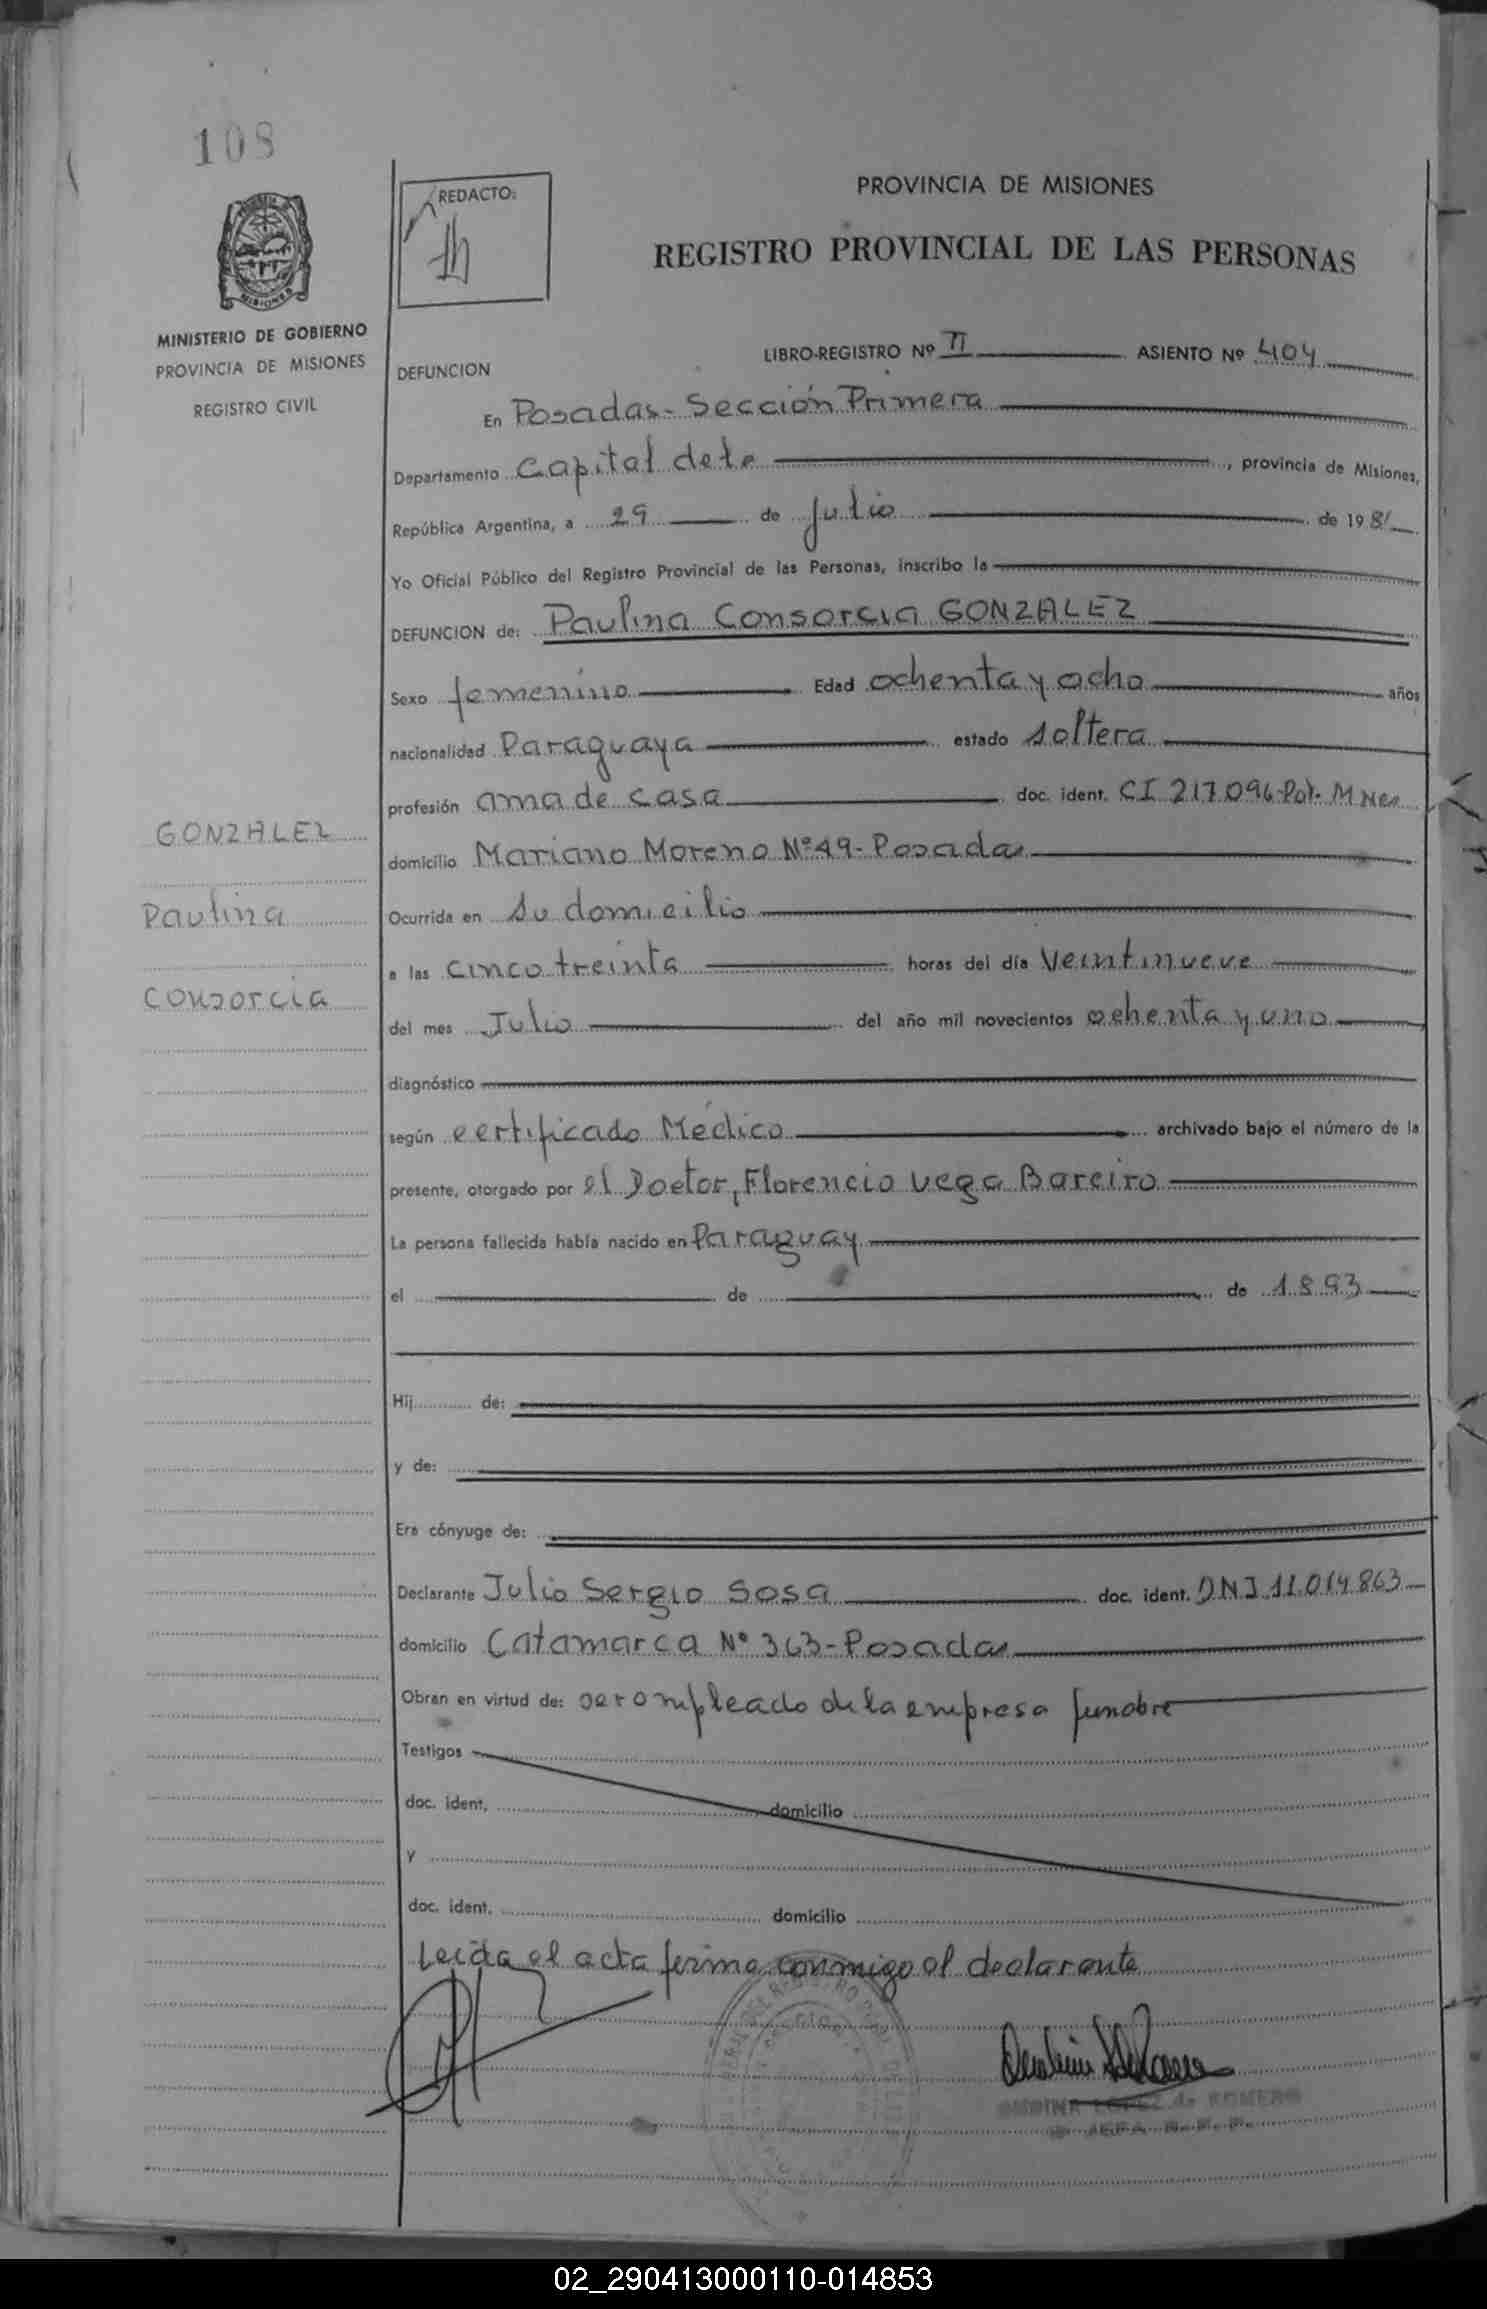 108
REDACTO:
PROVINCIA DE MISIONES
REGISTRO PROVINCIAL DE LAS PERSONAS
MISIONES
MINISTERIO DE GOBIERNO
PROVINCIA DE MISIONES
REGISTRO CIVIL
LIBRO-REGISTRO Nº II ASIENTO Nº 404
DEFUNCION
En Posadas - Sección Primera
Departamento Capital de te, provincia de Misiones,
República Argentina, a 29 de julio de 1981
Yo Oficial Público del Registro Provincial de las Personas, inscribo la
DEFUNCION de: Paulina Consorcia GONZALEZ
Sexo femenino Edad ochenta y ocho años
nacionalidad Paraguaya estado soltera
profesión ama de casa doc. ident. CI 217.096-Pol. Mnes
GONZALEZ
domicilio Mariano Moreno Nº 49 - Posadas
Paulina
Ocurrida en su domicilio
a las cinco treinta horas del día veintinueve
Consorcia
del mes Julio del año mil novecientos ochenta y uno
diagnóstico
según certificado Médico archivado bajo el número de la
presente, otorgado por el Doctor, Florencio Vega Bareiro
La persona fallecida había nacido en Paraguay
el de de 1893
Hij de:
y de:
Era cónyuge de:
Declarante Julio Sergio Sosa doc. ident. DNI 11.014.863
domicilio Catamarca Nº 363 - Posadas
Obran en virtud de: ser empleado de la empresa funebre
Testigos
doc. ident. domicilio
y
doc. ident. domicilio
Leida el acta firma conmigo el declarante
LOPEZ de ROMERO
JEFA R. P. P.
02_290413000110-014853